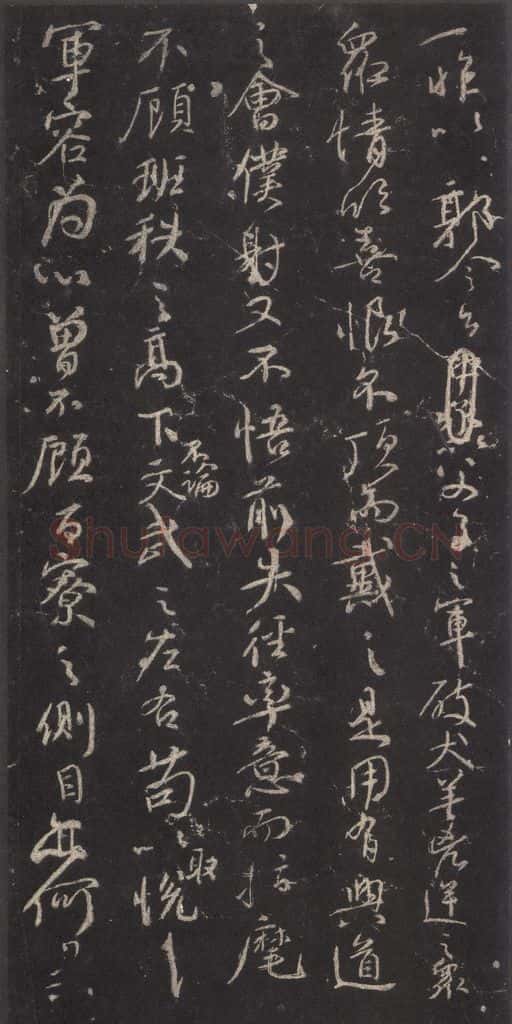 一昨以郭令公以父子之軍破犬羊凶逆之衆
衆情欣喜恨不頂而戴之是用有興道
之會僕射又不悟前失徑率意而指麾
不顧班秩之高下不論文武之左右苟以取悅
軍容為心曾不顧百寮之側目亦何
Shufawang.CN